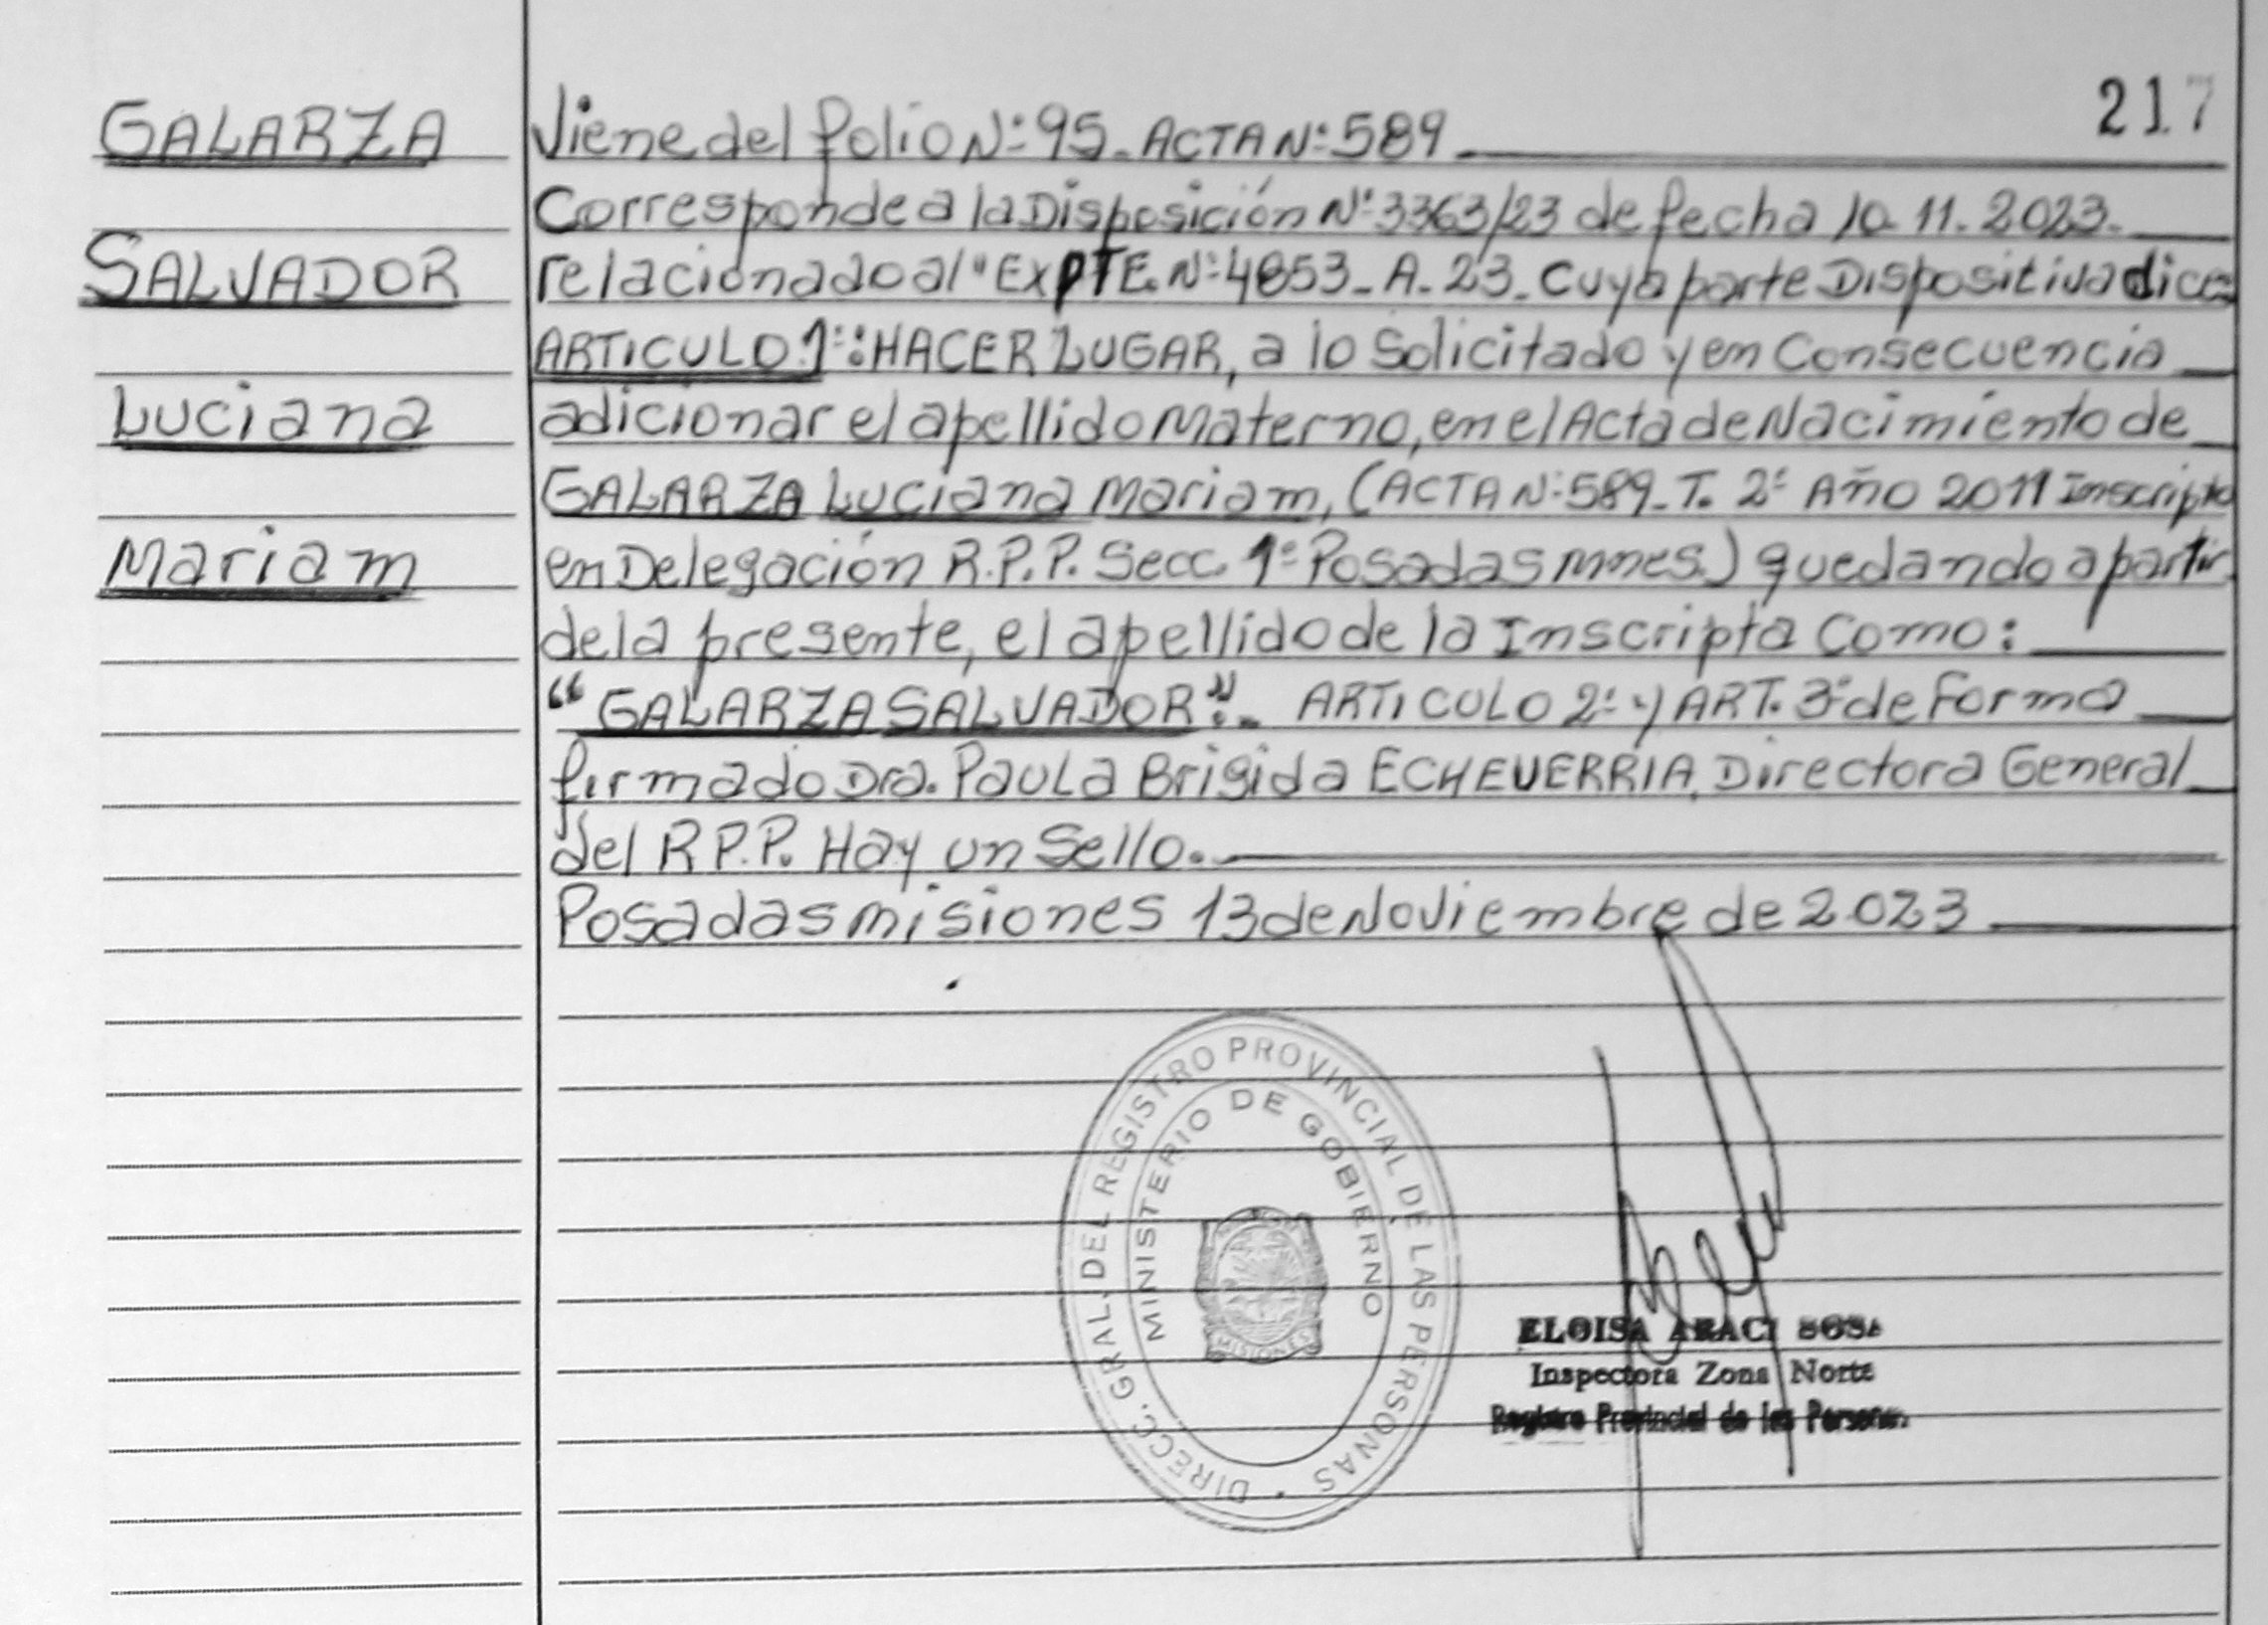 217
GALARZA
SALVADOR
Luciana
Mariam
Viene del folio N° 95_ ACTA N° 589
Corresponde a la Disposición N° 3363/23 de fecha 10. 11. 2023.
relacionado al "EXPTE. N° 4853_A_23_ Cuya parte Dispositiva dice:
ARTICULO 1°: HACER LUGAR, a lo Solicitado y en Consecuencia
adicionar el apellido Materno, en el Acta de Nacimiento de
GALARZA Luciana Mariam, (ACTA N° 589_T. 2° Año 2011 Inscripto
en Delegación R.P.P. Secc. 1° Posadas Mnes.) quedando a partir
de la presente, el apellido de la Inscripta Como:
"GALARZA SALVADOR"._ ARTICULO 2° y ART. 3° de Forma
firmado Dra. Paula Brigida ECHEVERRIA, Directora General
del R P.P. Hay un Sello.
Posadas misiones 13 de Noviembre de 2023
DIRECC. GRAL. DEL REGISTRO PROVINCIAL DE LAS PERSONAS
MINISTERIO DE GOBIERNO
MISIONES
ELOISA ARACI SOSA
Inspectora Zona Norte
Registro Provincial de las Personas